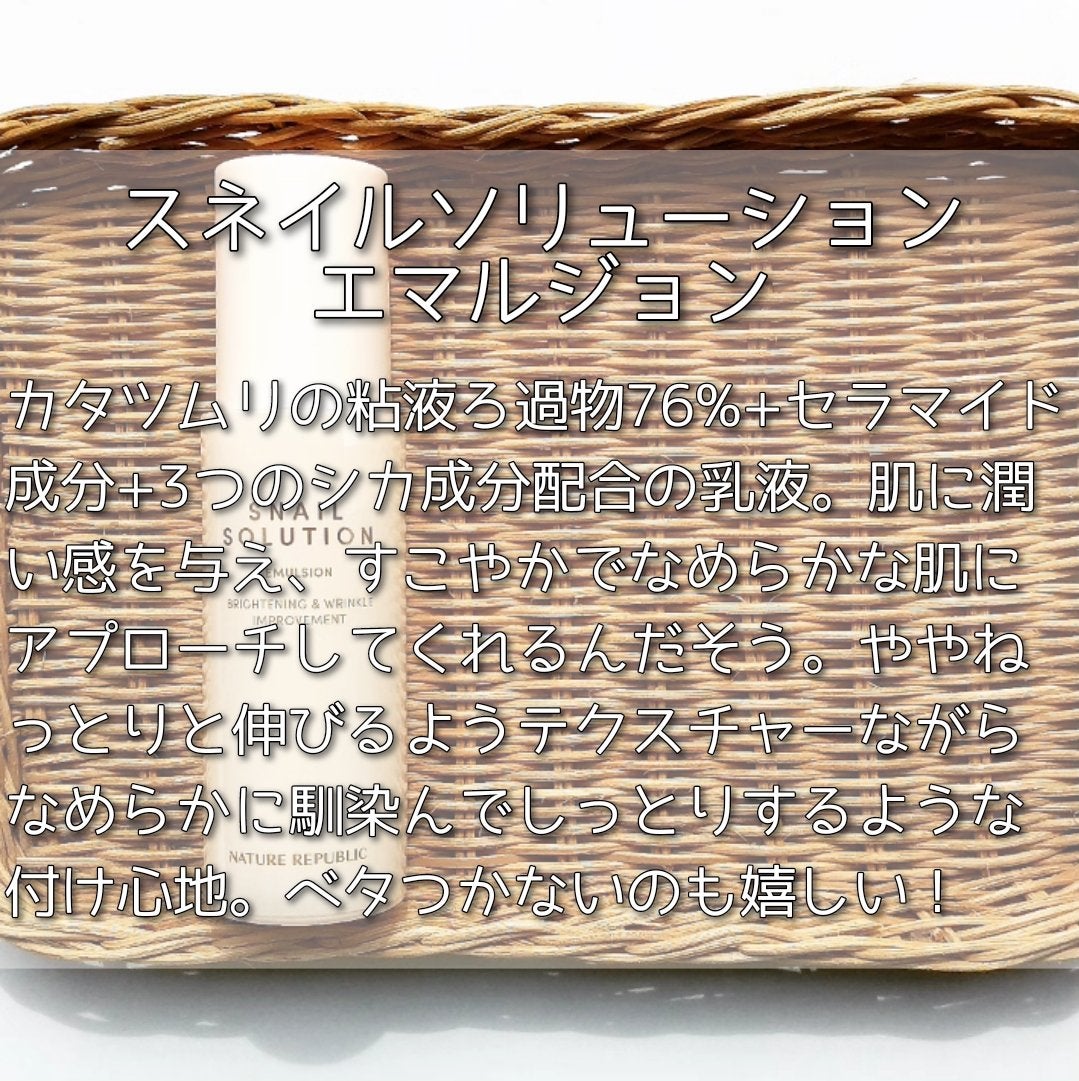 スネイルソリューション
エマルジョン
カタツムリの粘液ろ過物76%+セラマイド
成分+3つのシカ成分配合の乳液。肌に潤
い感を与え、すこやかでなめらかな肌に
アプローチしてくれるんだそう。ややね
っとりと伸びるようテクスチャーながら
なめらかに馴染んでしっとりするような
付け心地。ベタつかないのも嬉しい！
SNAIL
SOLUTION
EMULSION
BRIGHTENING & WRINKLE
IMPROVEMENT
NATURE REPUBLIC